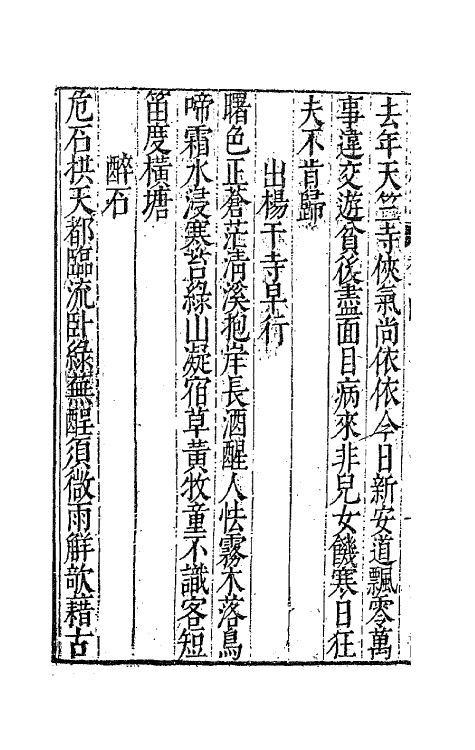 去年天竺寺俠氣尚依依今日新安道飄零萬
事違交遊貧後盡面目病來非兒女饑寒日狂
夫不肯歸
出楊干寺早行
曙色正蒼茫清溪抱岸長酒醒人怯霧木落鳥
啼霜水浸寒苔綠山凝宿草黃牧童不識客短
笛度橫塘
醉石
危石拱天都臨流臥綠蕪醒須微雨解欹藉古